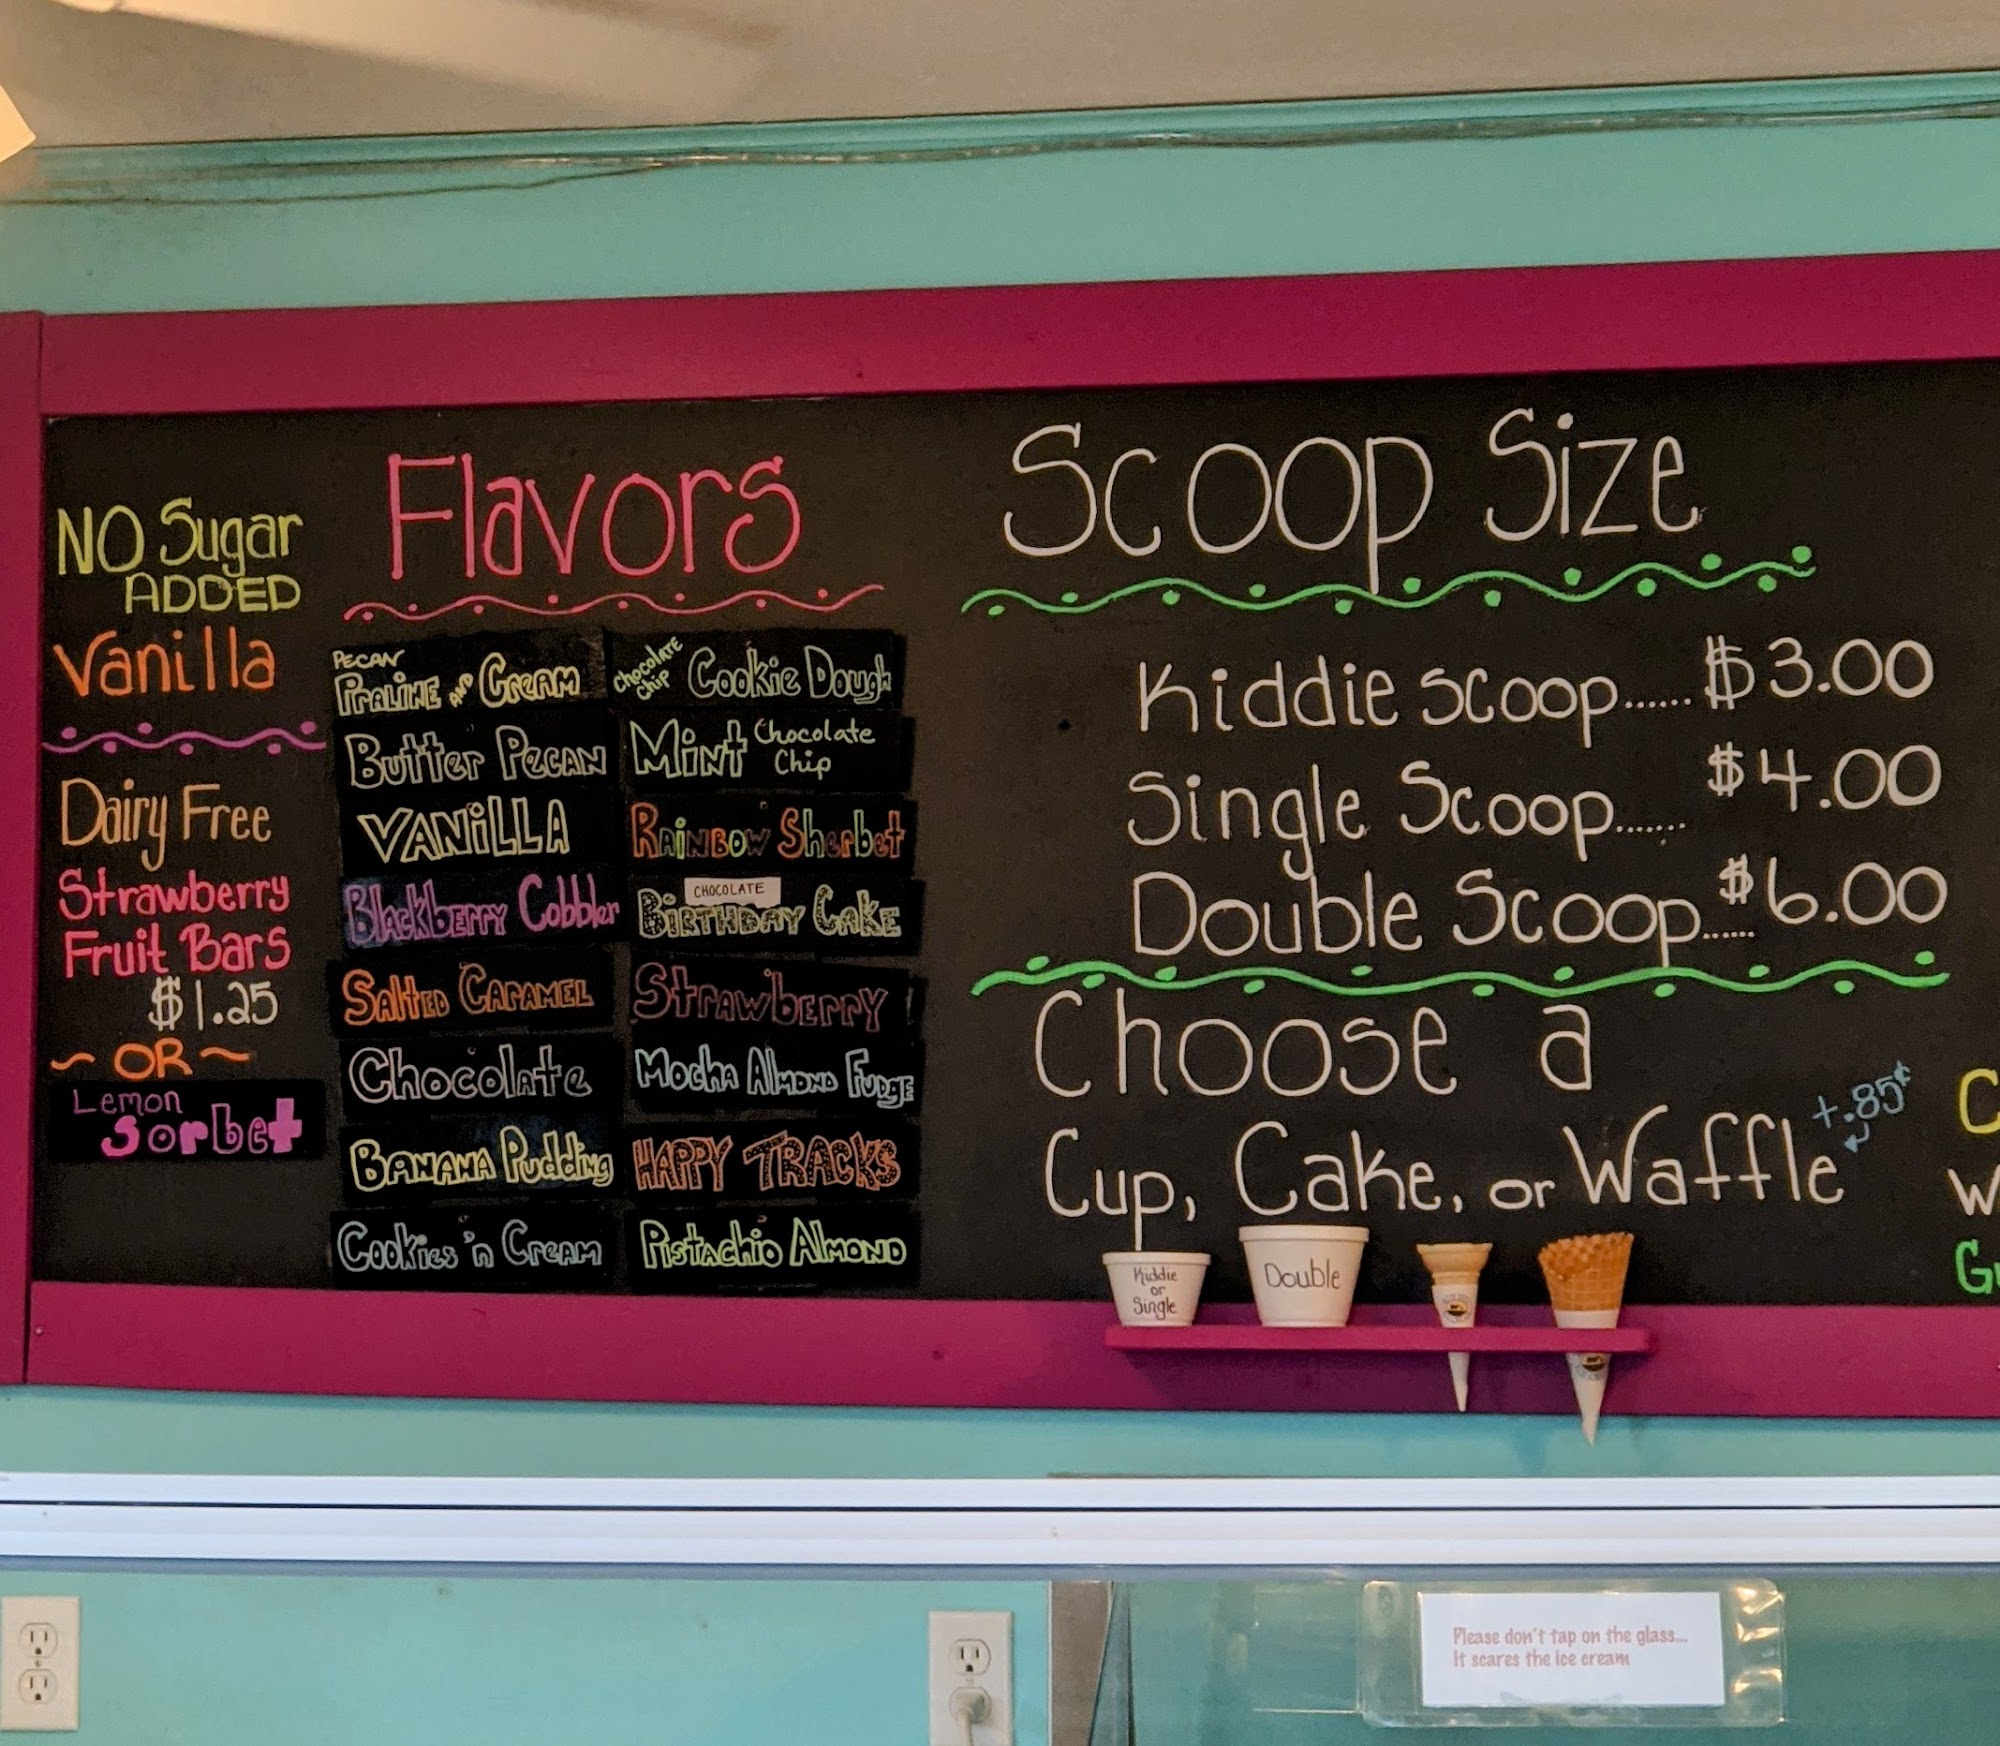 NO Sugar
ADDED
Vanilla
Dairy Free
Strawberry
Fruit Bars
$1.25
~ OR ~
Lemon
Sorbet
Flavors
PECAN
PRALINE AND CREAM
Butter Pecan
VANILLA
Blackberry Cobbler
Salted Caramel
Chocolate
Banana Pudding
Cookies 'n Cream
Chocolate
Chip
Cookie Dough
Mint Chocolate
Chip
Rainbow Sherbet
CHOCOLATE
BIRTHDAY CAKE
Strawberry
Mocha Almond Fudge
HAPPY TRACKS
Pistachio Almond
Scoop Size
Kiddie scoop...... $3.00
Single Scoop....... $4.00
Double Scoop...... $6.00
Choose a
Cup, Cake, or Waffle
+.85¢
Kiddie
or
Single
Double
Please don't tap on the glass...
It scares the ice cream